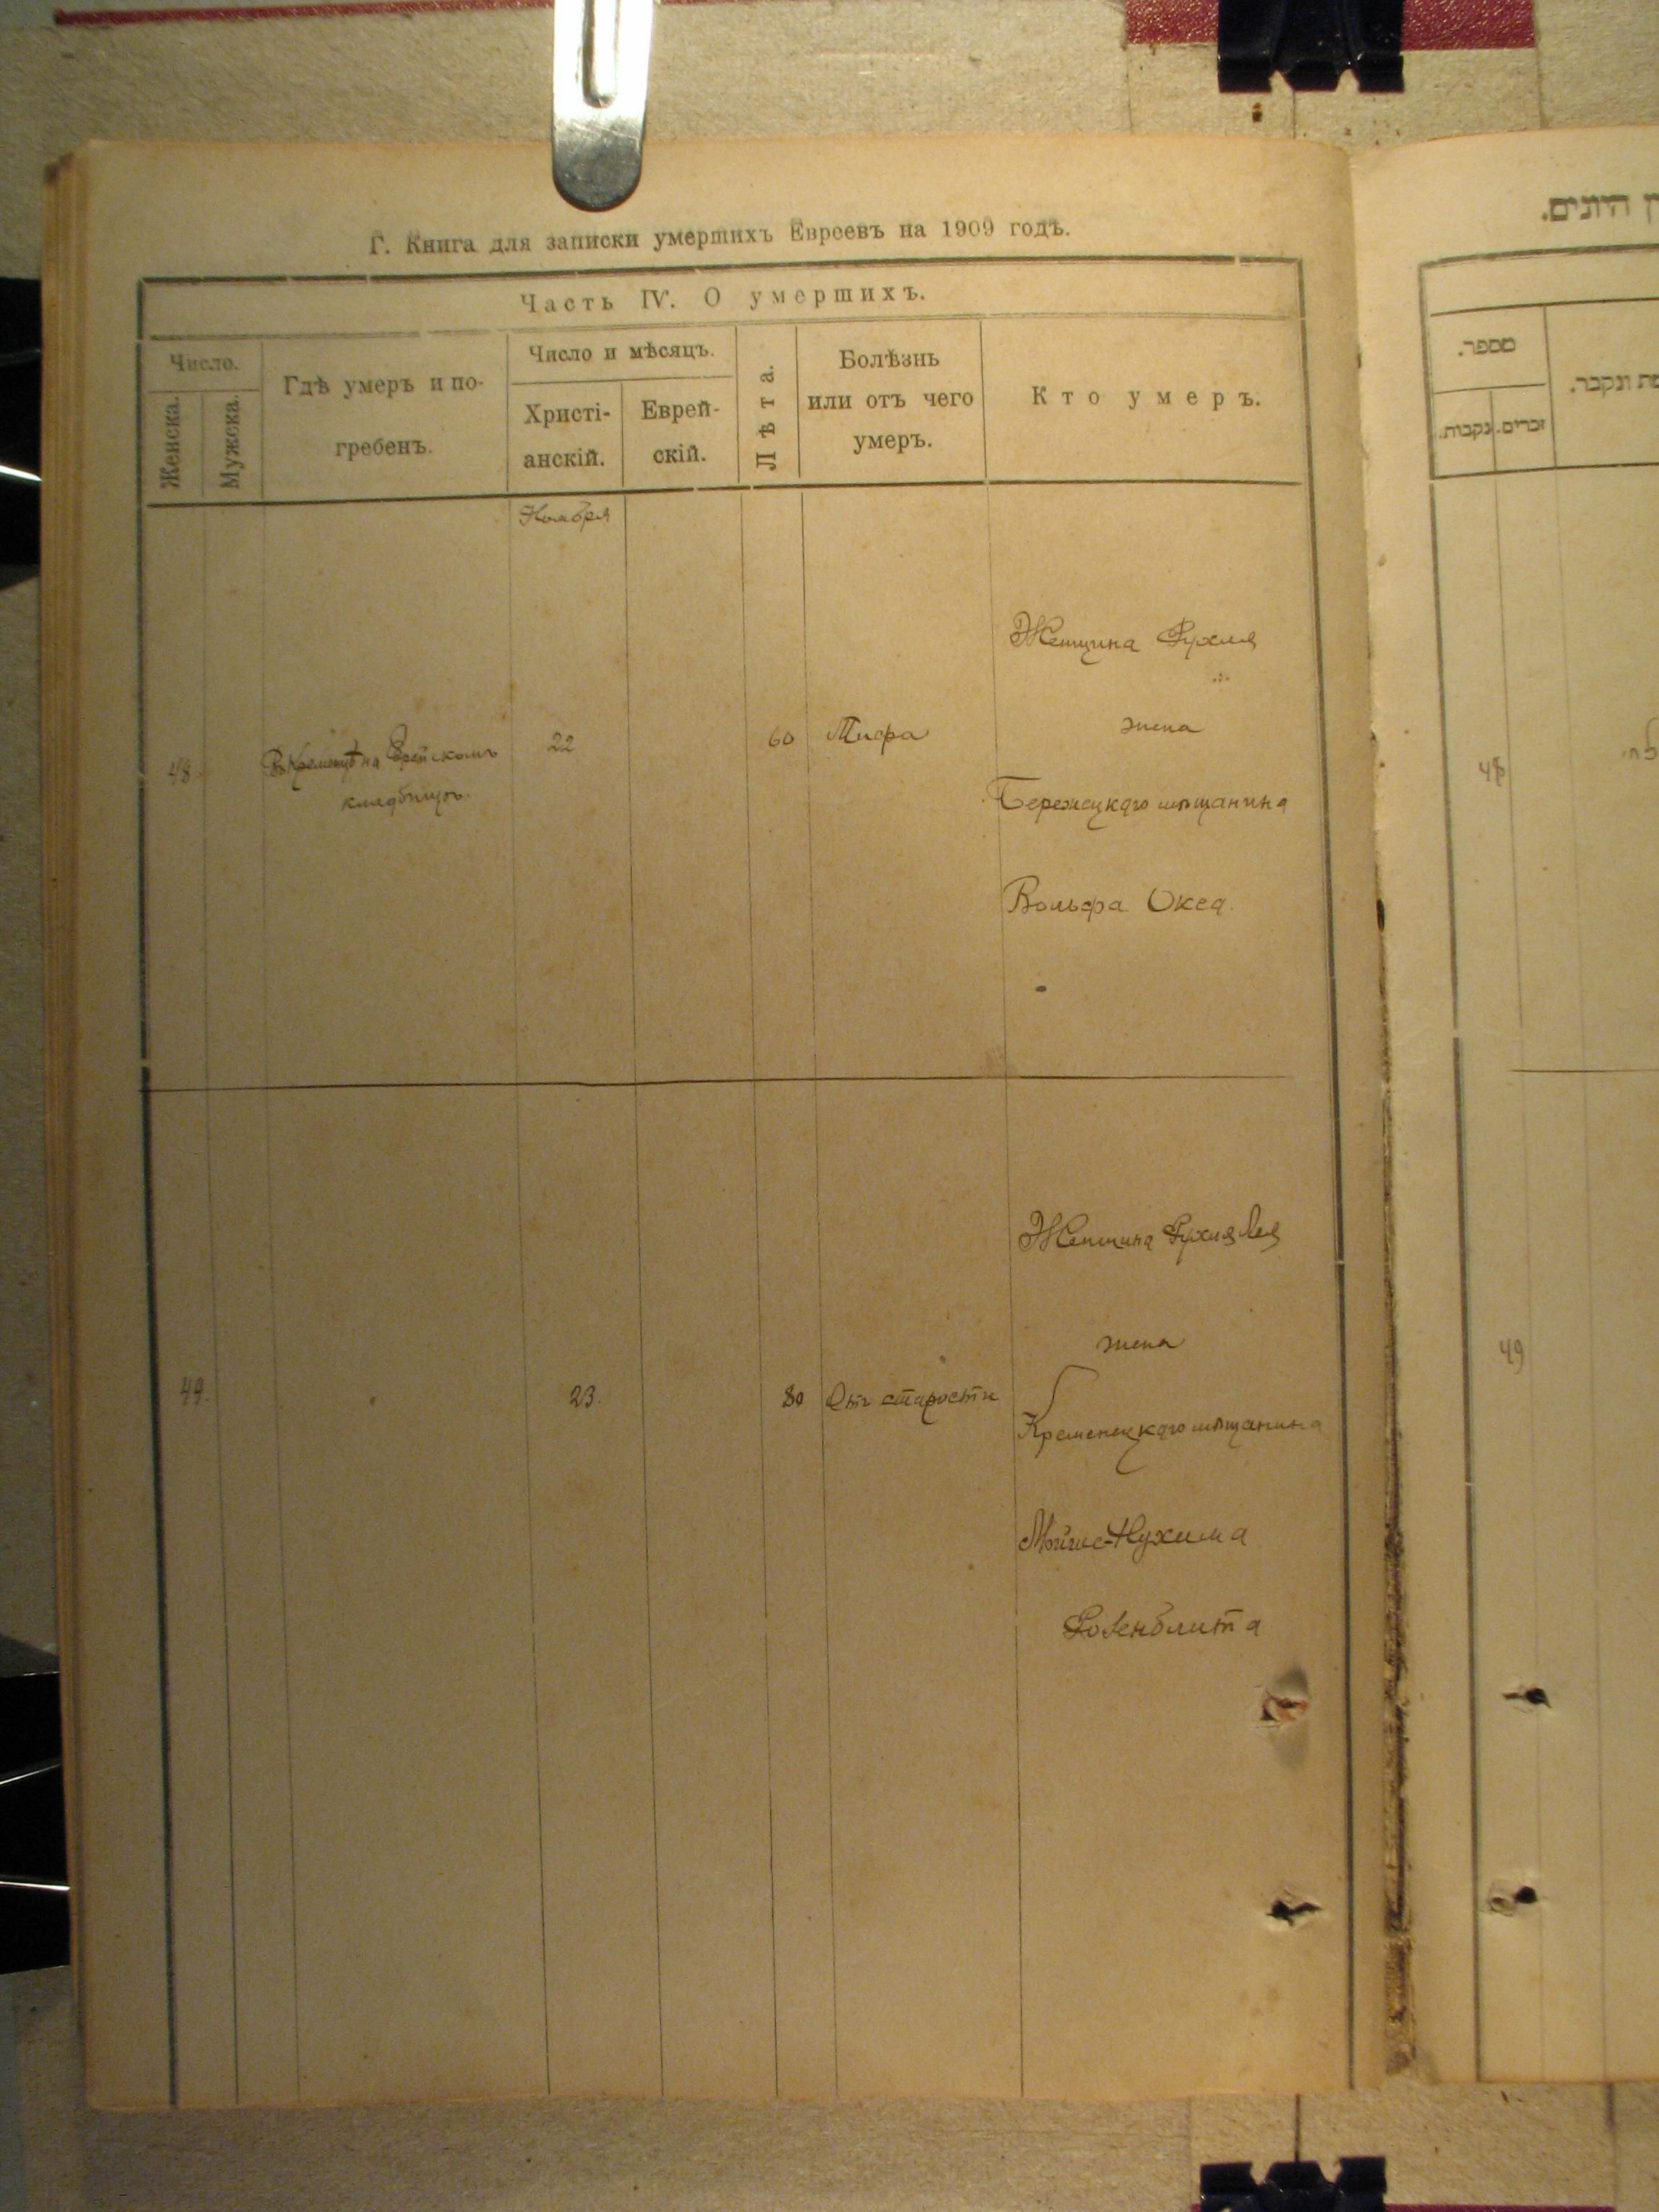 Г. Книга для записки умершихъ Евреевъ на 1909 годъ.
Часть IV. О умершихъ.
Число.
Женска.
Мужска.
Гдѣ умеръ и по-
гребенъ.
Число и мѣсяцъ.
Христі-
анскій.
Еврей-
скій.
Лѣта.
Болѣзнь
или отъ чего
умеръ.
Кто умеръ.
Ноября
48.
Въ Кременцѣ на Еврейскомъ
кладбищѣ.
22
60
Тифа
Женщина Рухля
жена
Бережецкаго мѣщанина
Вольфа Окса.
49.
23.
80
Отъ старости
Женщина Рухля Лея
жена
Кременецкаго мѣщанина
Мойше-Нухима
Розенблита
מספר.
נקבות.
זכרים.
ונקבר.
48
49